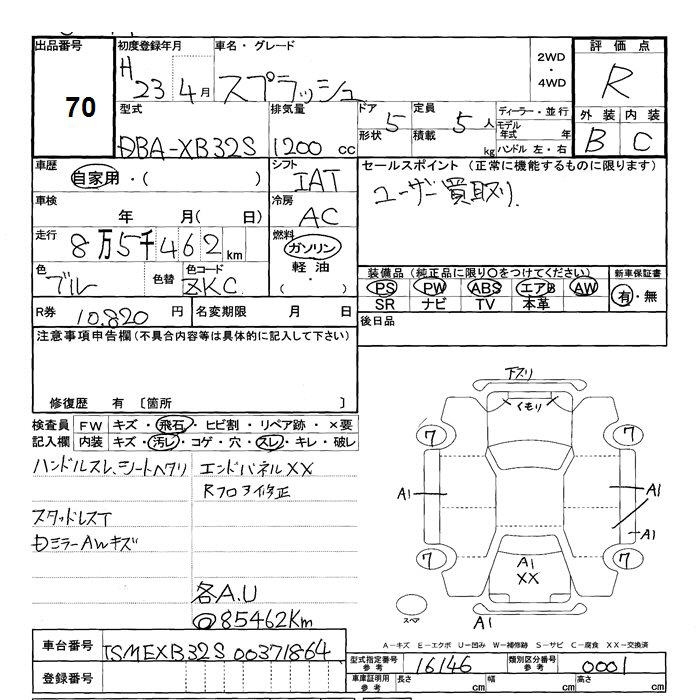 出品番号 初度登録年月 車名・グレード 2WD・4WD 評価点
70 H23 4月 スプラッシュ R
型式 排気量 ドア形状 5 定員 5人 積載 kg ディーラー・並行 モデル年式 年 ハンドル 左・右 外装 内装
DBA-XB32S 1200 cc B C
車歴 自家用・( ) シフト IAT セールスポイント (正常に機能するものに限ります)
車検 年 月( 日) 冷房 AC ユーザー買取り.
走行 8万5千462km 燃料 ガソリン 軽油 ( ・ )
色 ブルー 色替 色コード ZKC 装備品(純正品に限り○をつけてください) 新車保証書
PS PW ABS エアB AW 有・無
SR ナビ TV 本革
R券 10,820 円 名変期限 月 日 後日品
注意事項申告欄(不具合内容等は具体的に記入して下さい)
修復歴 有 〔箇所 〕
検査員 FW キズ・飛石・ヒビ割・リペア跡・×要
記入欄 内装 キズ・汚レ・コゲ・穴・スレ・キレ・破レ
ハンドルスレ、シートヘタリ エンドパネルXX
Rフロア修正
スタッドレスT
DミラーAWキズ
各A.U
@85462Km
下スリ
イモリ
7 7
A1 A1
A1
7 7
A1
XX
スペア A1
A―キズ E―エクボ U―凹み W―補修跡 S―サビ C―腐食 XX―交換済
車台番号 TSMEXB32S00371864 型式指定番号 参考 16146 類別区分番号 参考 0001
登録番号 車庫証明用 参考 長さ cm 幅 cm 高さ cm